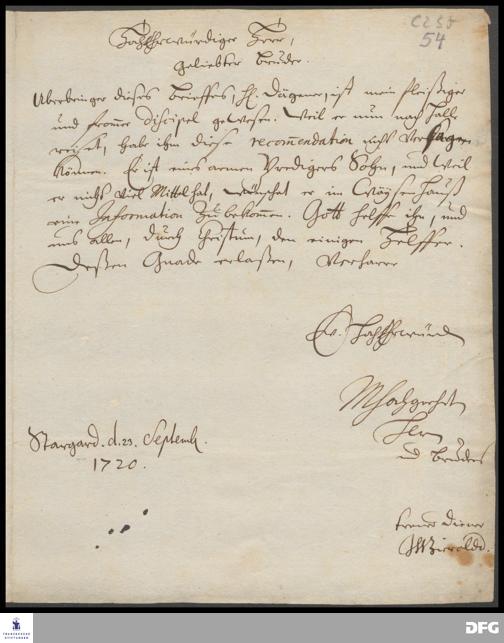 C285
54
HochEhrwürdiger Herr,
geliebter Bruder.
Uberbringer dieses Brieffes, H. Dägener, ist mein fleissiger
und frommer Discipel gewesen. Weil er nun nach Halle
reiset, habe ihm diese recommendation nicht versagen
können. Er ist eines armen Predigers Sohn, und weil
er nicht viel Mittel hat, wünschet er im Wäysenhauß
eine Information zu bekommen. Gott helffe ihm, und
uns allen, durch Christum, den einigen Helffer.
Deßen Gnade erlaßen, verharre
Ew. HochEhrwürd
Mhochgeehrt
Herrn
und Bruders
Stargard. d. 23. Septemb.
1720.
treuer Diener
FRANCKESCHE
STIFTUNGEN
DFG